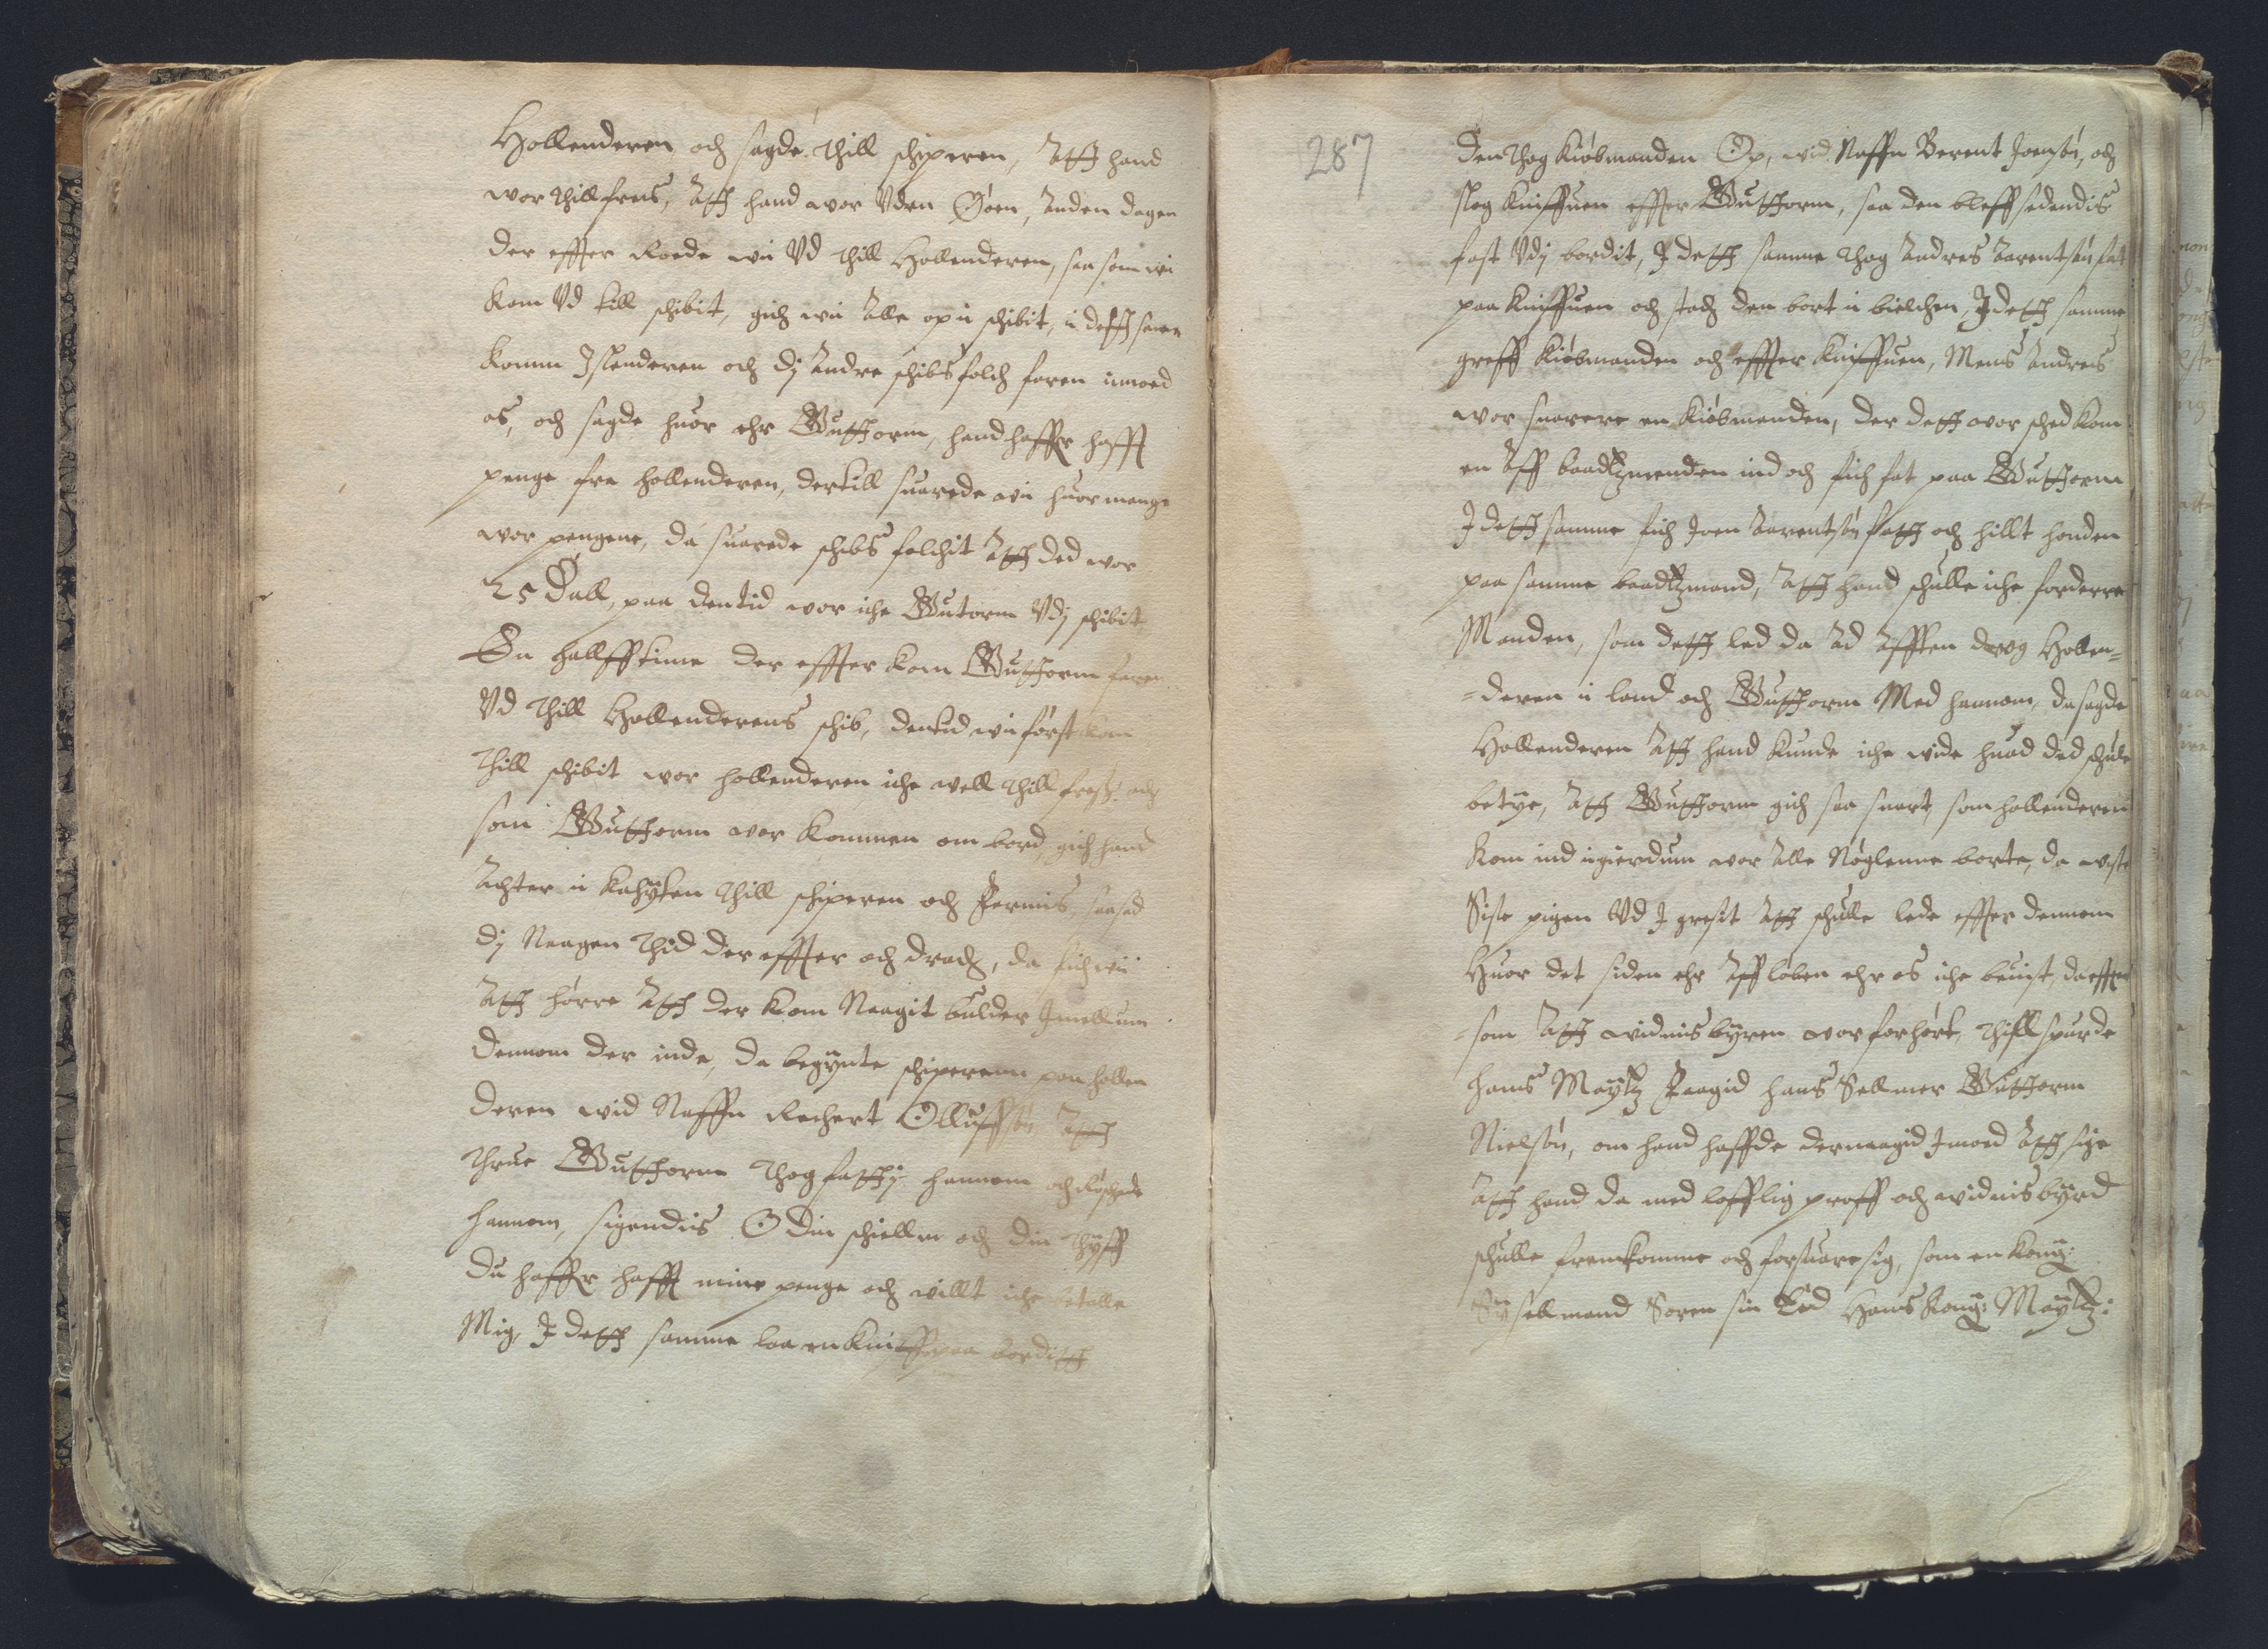 Hollenderen och sagde thill schiperen, Atth hand
wor thillfreds, Atth hand wor Vden Øoen, Anden dagen
der effter Roede wii Vd thill Hollenderen, saa som wi
kom Vd till schibit, gich wii Alle op ii schibit, ii detth samme
komm Islenderen och dj Andre schibsfolch faren iimoed
os, och sagde huor ehr Gutthorm, hand haffer hafft
penge fra hollenderen, dertill suarede wii huor mange
wor pengene, da suarede schibs folchit Atth ded wor
25 Dall, paa den tid wor iche Gutorm Vdj schibit
En hallff time der effter kom Gutthorm faren
Vd thill Hollenderens schib, dentid wii først kom
thill schibit wor hollenderen iche well thill freds, och
som Gutthorm wor kommen om bord, gich hand
Achter ii kahytten thill schiperen och sad
dj Naagen thid der effter och drach, da fich wii
Atth hørre Atth der kom Naagit bulder Imellum
dennom der inde, da begynte schiperenn paa hollen
deren wid Naffn Rechert Olluffsøn Atth
thrue Gutthorm thog fatth ij hannom och
hannom, sigendiis O din schiellm och din thyff
du haffer hafft mine penge och willt iche betalle
Mig, I detth samme laa en kniff paa borditth
287
Den thog kiøbmanden Op, wid Naffn Berent Joensøn, och
slog kniffuen effter Gutthorm, saa den bleff sedendis
fast Vdj bordit, I detth samme thog Andres Arentsøn fat
paa kniffuen och stach den bort ii bielchen, I detth samme
greff kiøbmanden och effter kniffuen, Mens Andreis
wor snarere en kiøbmanden, der detth wor sched kom
en Aff baadtzmenden ind och fich fat paa Gutthorm
I detth samme fich Joen Arentsøn fatth och hillt handen
paa samme baadtzmand, Atth hand schulle iche forderre
Manden, som detth led da Ad Afften drog Hollen=
=deren ii land och Gutthorm Med hannom, da sagde
Hollenderen Atth hand kunde iche wide huad ded schule
betye, Atth Gutthorm gich saa snart, som hollenderen
kom ind iigierdum wor Alle Nøglenne borte, da wiste
Siste pigen Vd I gresit Atth schulle lede effter dennom
Huor det siden ehr Aff løben ehr os iche beuist, da effter
=som Atth widnisbyren wor forhørt, thillspurde
hans Maytz Faagid hans Sellmer Gutthorm
Nielsøn, om hand haffde der naagid Imoed Atth sige
Atth hand da med lofflig proff och widnisbyrd
schulle fremkomme och forsuare sig, som en kong:
Sysellmand Soren sin Eed Hans kong: Maytz: